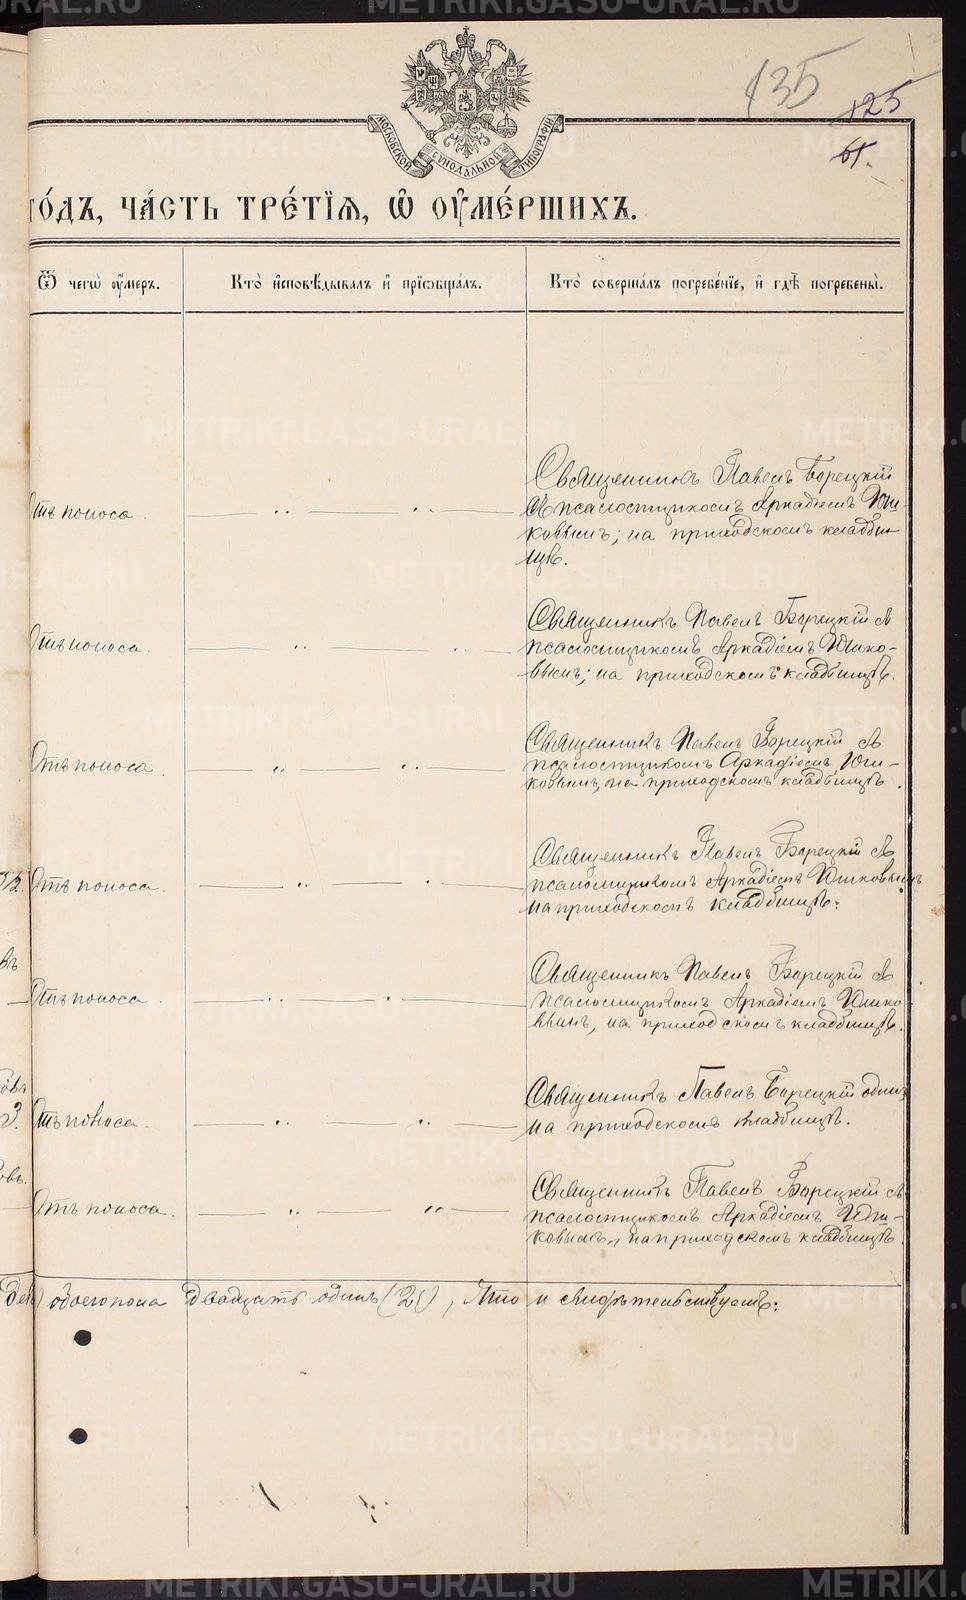 135
125
61.
МОСКОВСКОЙ СѴНОДАЛЬНОЙ ТИПОГРАФІИ
го́дъ, ча́сть тре́тїѧ, ѡ҆ ᲂу҆ме́ршихъ.
Ѿ чегѡ̀ ᲂу҆́меръ.
Кто̀ и҆сповѣ́дывалъ и҆ прїѡбща́лъ.
Кто̀ соверша́лъ погребе́нїе, и҆ гдѣ̀ погребены̀.
Отъ поноса.
Священникъ Павелъ Борецкій
съ псаломщикомъ Аркадіемъ Юш-
ковымъ; на приходскомъ кладби-
щѣ.
Отъ поноса.
Священникъ Павелъ Борецкій съ
псаломщикомъ Аркадіемъ Юшко-
вымъ; на приходскомъ кладбищѣ.
Отъ поноса.
Священникъ Павелъ Борецкій съ
псаломщикомъ Аркадіемъ Юш-
ковымъ, на приходскомъ кладбищѣ.
Отъ поноса.
Священникъ Павелъ Борецкій съ
псаломщикомъ Аркадіемъ Юшковымъ
на приходскомъ кладбищѣ.
въ
Отъ поноса.
Священникъ Павелъ Борецкій съ
псаломщикомъ Аркадіемъ Юшко-
вымъ, на приходскомъ кладбищѣ.
3. Отъ поноса.
Священникъ Павелъ Борецкій одинъ
на приходскомъ кладбищѣ.
овъ.
Отъ поноса.
Священникъ Павелъ Борецкій съ
псаломщикомъ Аркадіемъ Юш-
ковымъ, на приходскомъ кладбищѣ.
обоего пола двадцать одинъ (21), что и свидѣтельствуемъ:
METRIKI.GASO-URAL.RU